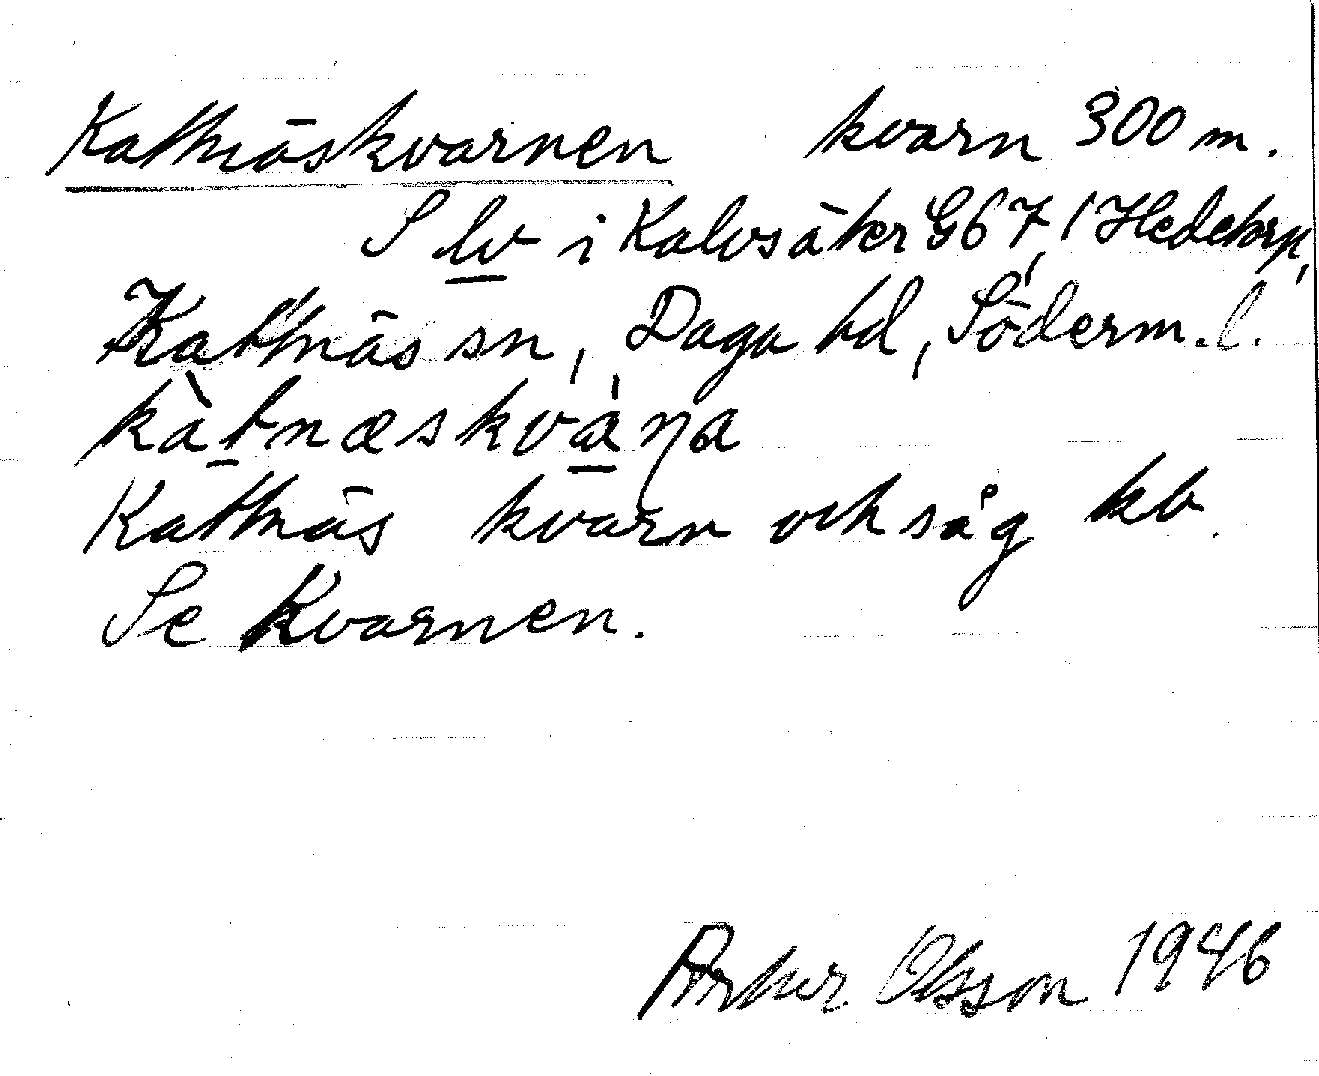 Kattnäskvarnen kvarn 300 m.
S lv i Kalvsäker G67, 1 Hedetorp,
Kattnäs sn, Daga hd, Söderm. l.
kàtnæskváɳa
Kattnäs kvarn och såg kb.
Se Kvarnen.
Olsson 1946